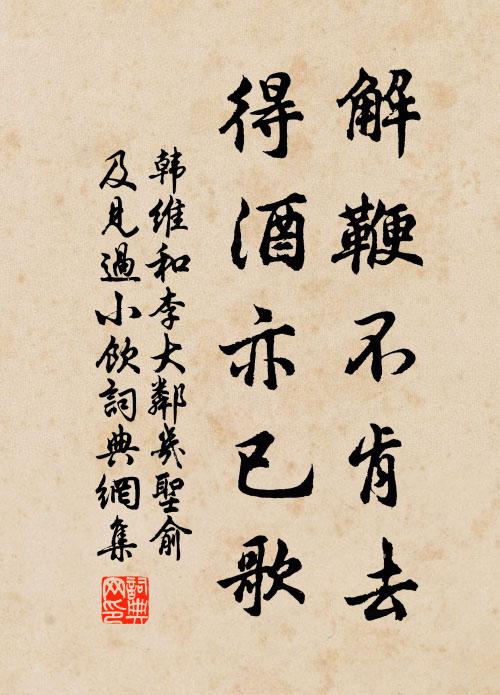 解鞭不肯去
得酒亦已歌
韩维和李大鄰幾聖俞
及見過小飲詞典網集
詞典网印